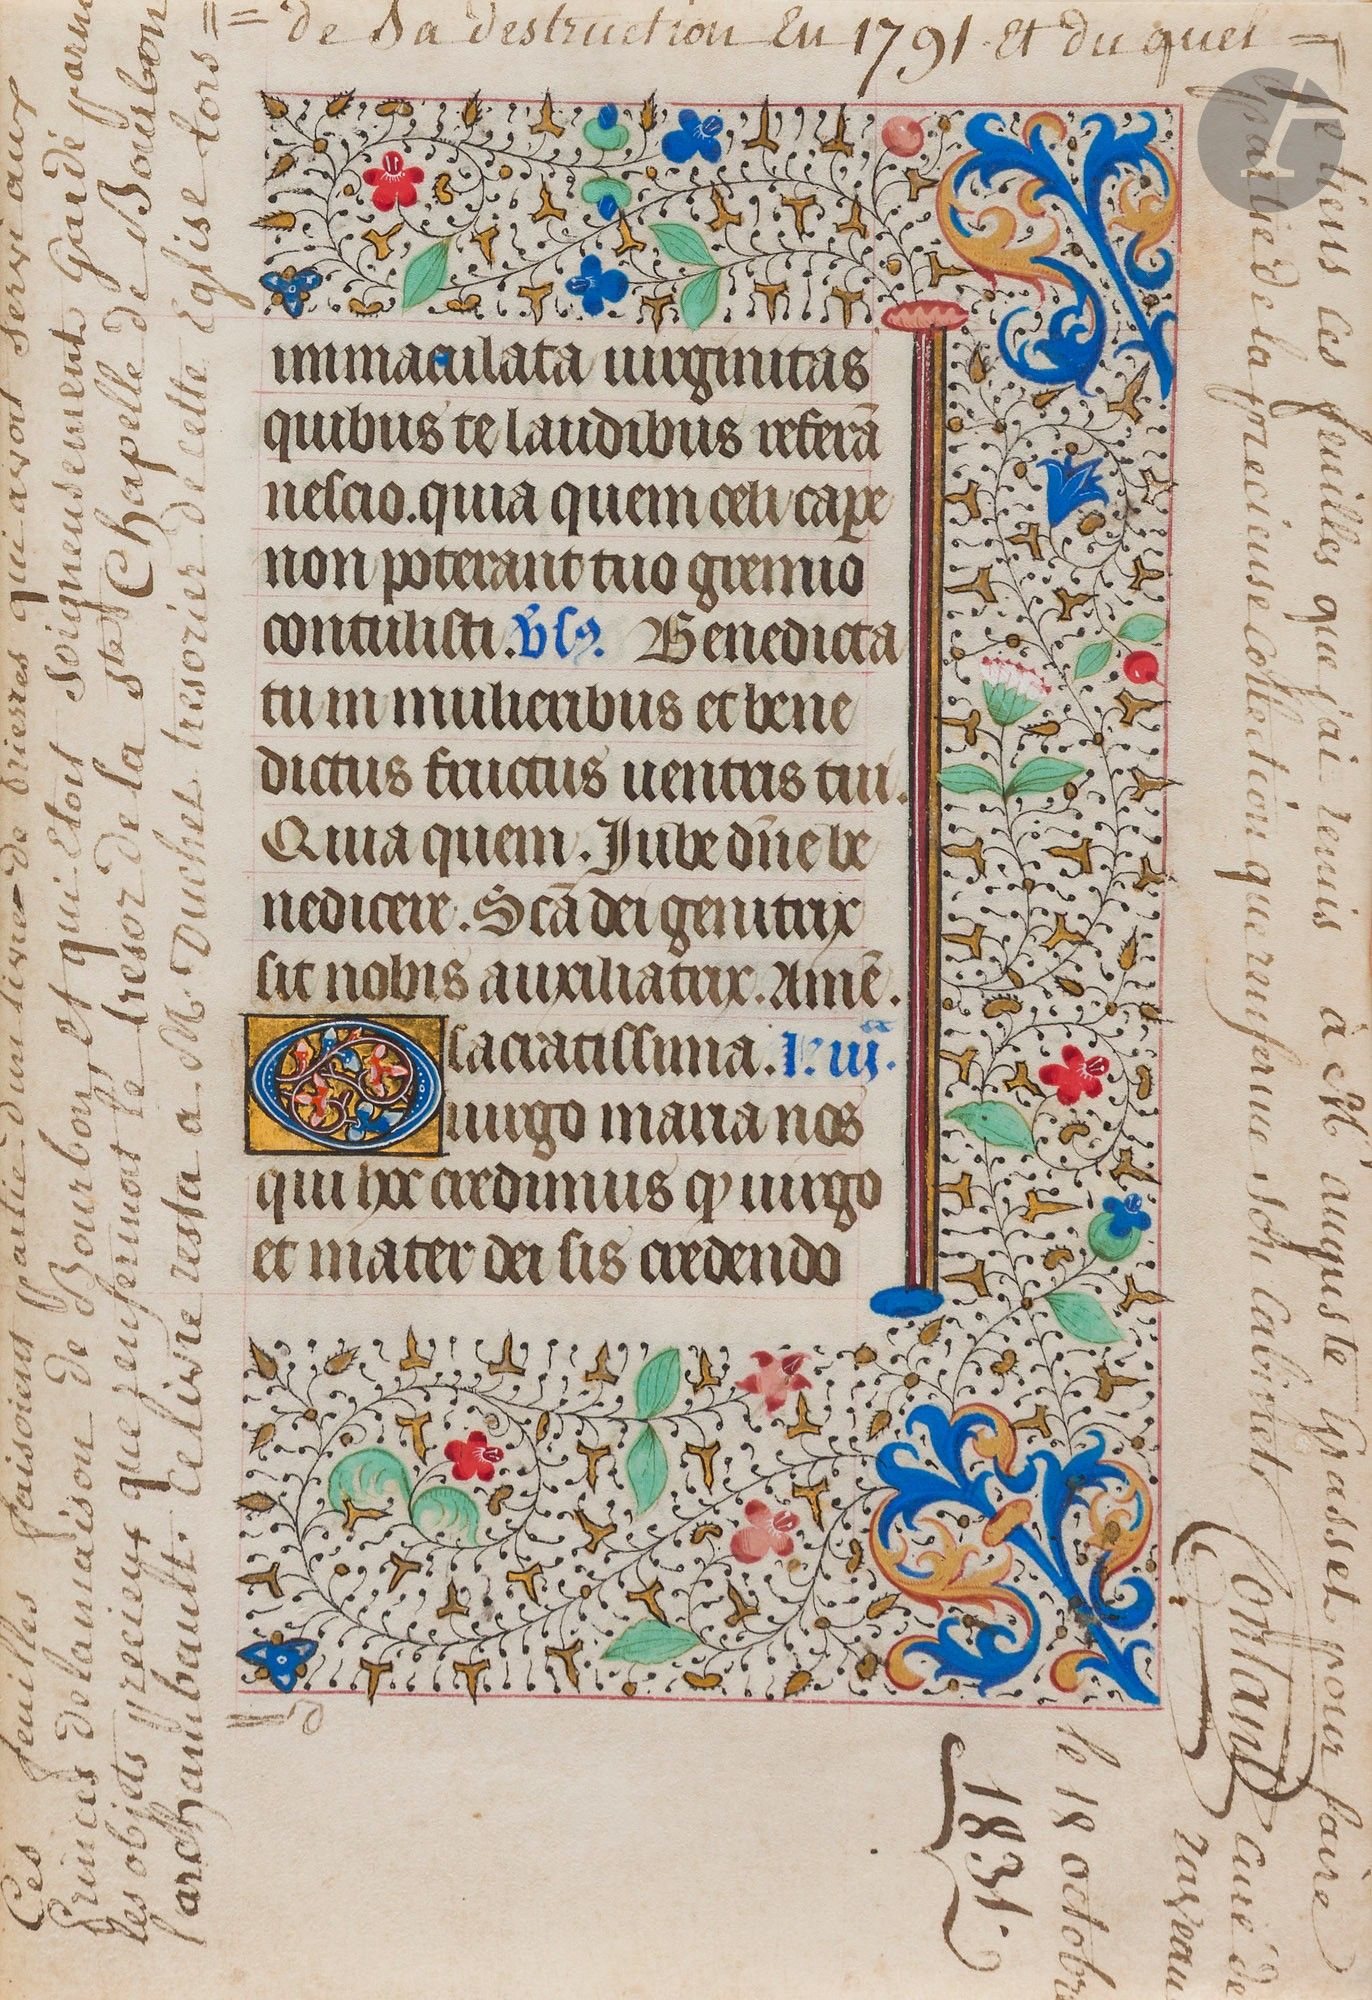 Ces feuilles faisoient partie d'un livre de prieres qui avoit servi aux
Princes de la maison de Bourbon, et qui etoit soigneusement gardé parmi
les objets precieux que renfermoit le tresor de la ste Chapelle de Bourbon
l'archambault. Ce livre resta a M. Duchet tresorier de cette Eglise lors =
= de Sa destruction En 1791. Et du quel =
je tiens ces feuilles que j'ai remis à Mr auguste Grasset pour faire
partie de la precieuse collection que renferme Son Cabinet
Contant curé de
le 18 octobre
1831.
immaculata uirginitas
quibus te laudibus referā
nescio. quia quem celi cape
non poterant tuo gremio
contulisti. v̄s. Benedicta
tu in mulieribus et bene
dictus fructus uentris tui.
Quia quem. Iube dn̄e be
nedicere. Scā dei genitrix
sit nobis auxiliatrix. Amē.
O sacratissima. l. iii.
uirgo maria nos
qui hec credimus qȝ uirgo
et mater dei sis credendo